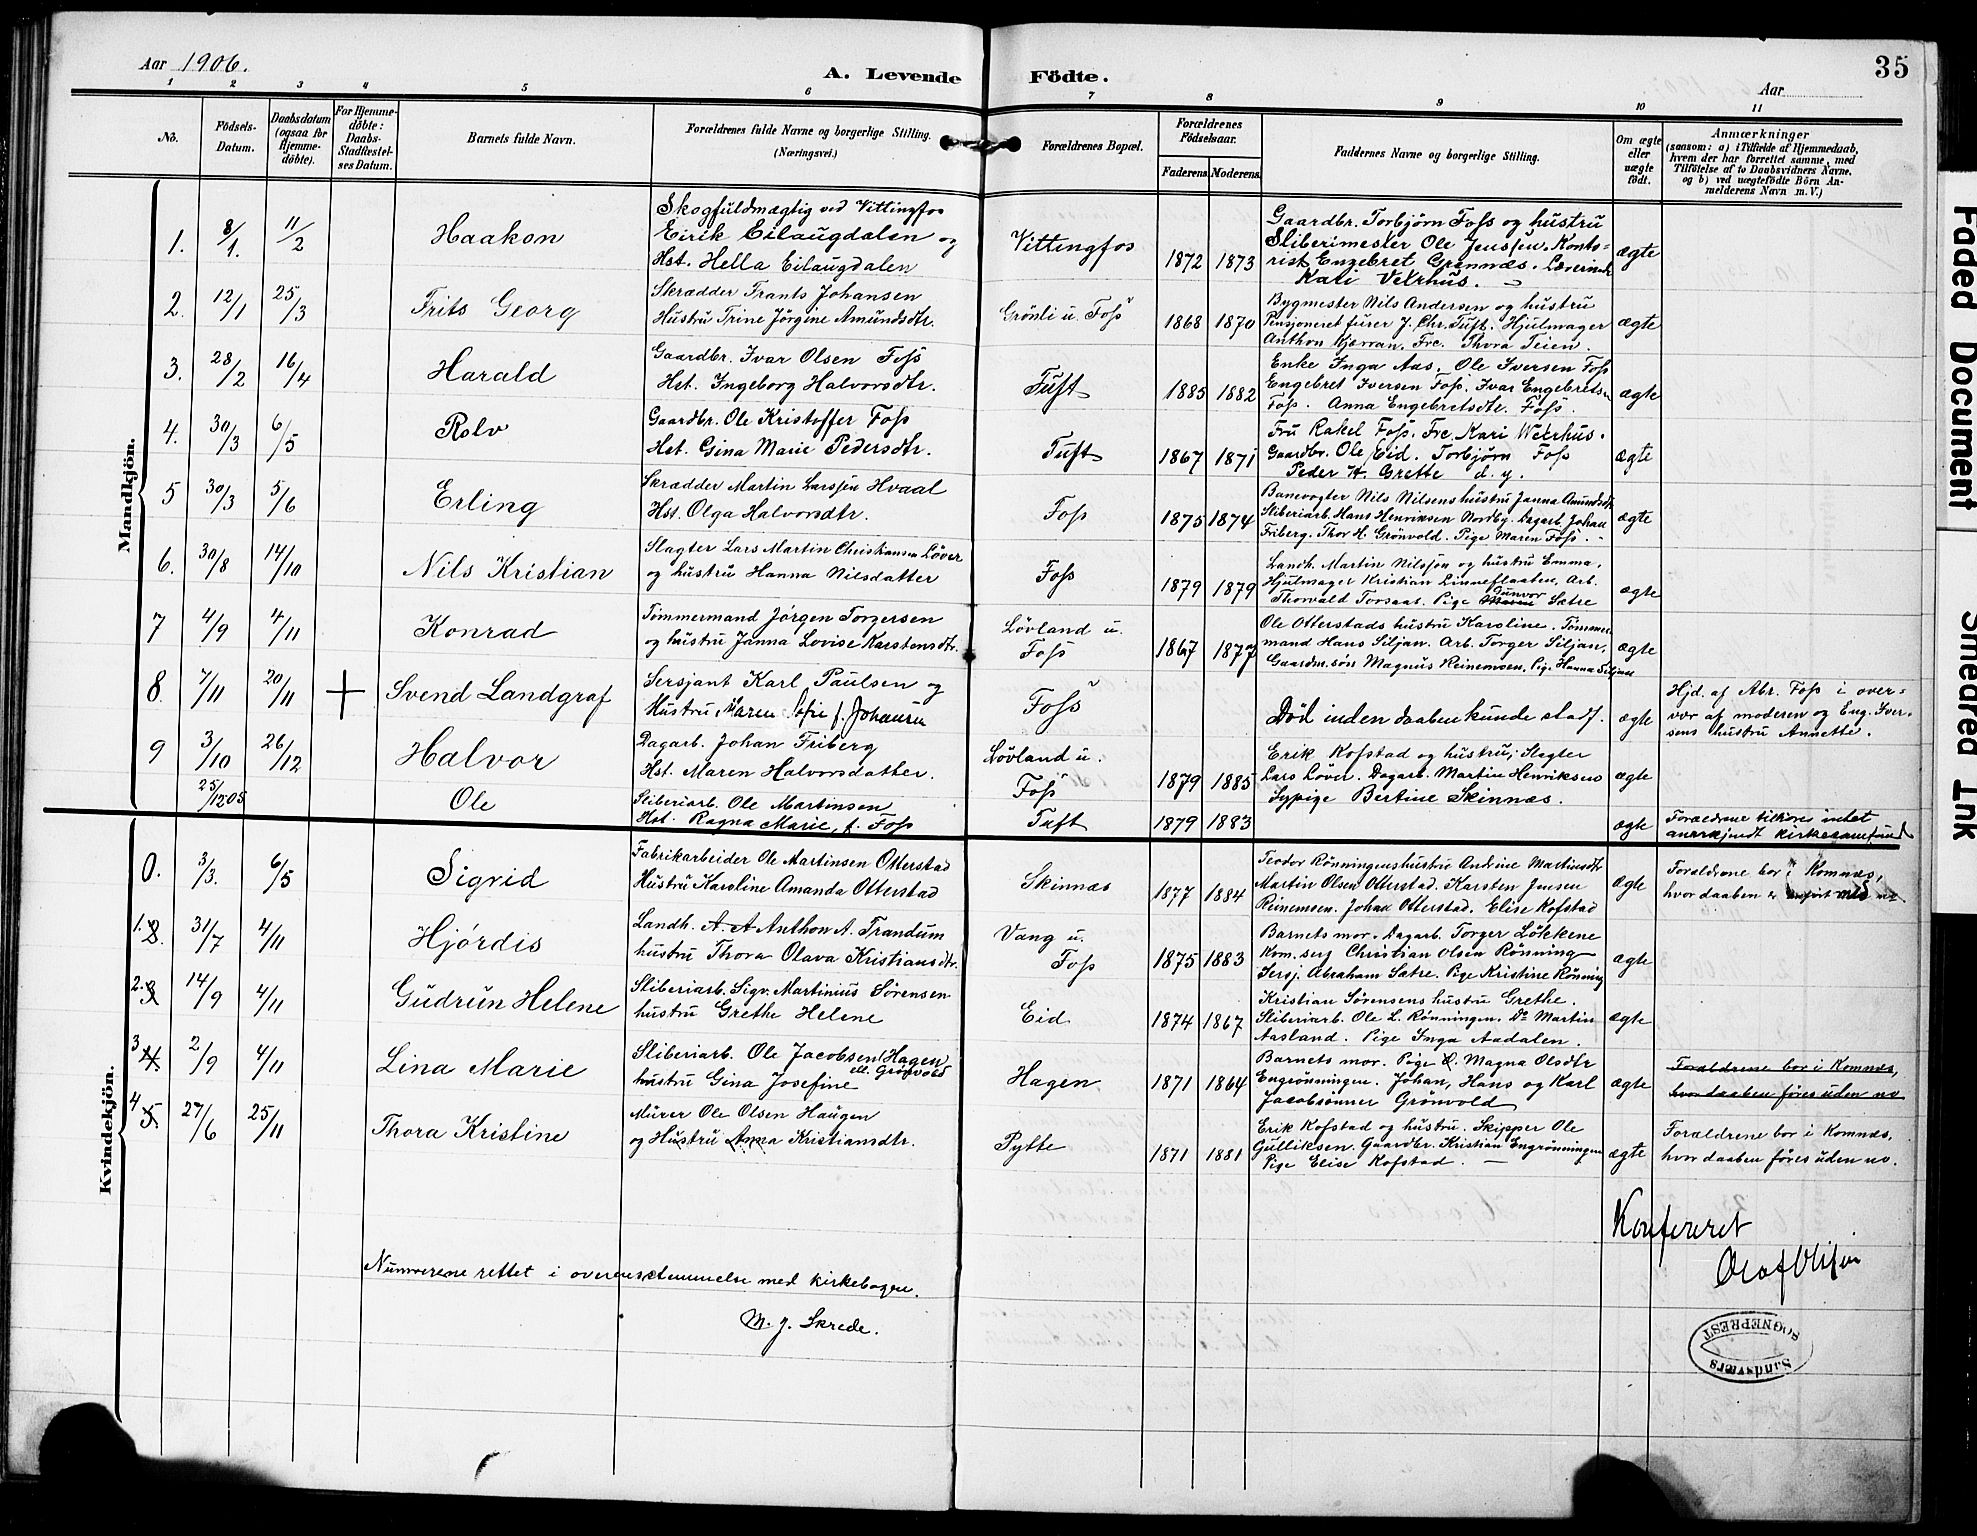 Aar 1906.
A. Levende Födte.
Aar
35
1 2 3 4 5 6 7 8 9 10 11
No.
Födsels-Datum.
Daabsdatum (ogsaa for Hjemme-döbte).
For Hjemme-döbte: Daabs-Stadfæstel-ses Datum.
Barnets fulde Navn.
Forældrenes fulde Navne og borgerlige Stilling.
(Næringsvei.)
Forældrenes Bopæl.
Forældrenes Födselsaar.
Faderens. Moderens.
Faddernes Navne og borgerlige Stilling.
Om ægte eller uægte födt.
Anmærkninger
(saasom: a) i Tilfælde af Hjemmedaab,
hvem der har forrettet samme, med
Tilföielse af to Daabsvidners Navne,
og b) ved uægtefödte Börn An-
melderens Navn m. V.)
Mandkjön.
1. 8/1. 11/2 Haakon
Skogfuldmægtig ved Vittingfos
Eirik Eilaugdalen og
Hst. Hella Eilaugdalen
Vittingfos 1872 1873
Gaardbr. Torbjörn Foss og hustru
Sliberimester Ole Jenssen. Konto=
rist Engebret Grönnæs. Lærerinde
Kari Vetrhus.
ægte
2. 12/1 25/3 Frits Georg
Skrædder Frants Johansen
Hustru Trine Jörgine Amundsdtr.
Grönli u. Foss 1868 1870
Bygmester Nils Andersen og hustru
Pensjoneret furer J. Chr. Tuft. Hjulmager
Anthon Kjærran. Frc. Thora Teien.
ægte
3. 28/2 16/4 Harald
Gaardbr. Ivar Olsen Foss
Hst. Ingeborg Halvorsdtr.
Tuft 1885 1882
Enke Inga Aas. Ole Iversen Foss
Engebret Iversen Foss. Ivar Engebrets
Foss. Anna Engebretsdtr. Foss.
ægte
4. 30/3 6/5 Rolv
Gaardbr. Ole Kristoffer Foss
Hst. Gina Marie Pedersdtr.
Tuft 1867 1871
Fru Rakel Foss. Frc. Kari Wetrhus.
Gaardbr. Ole Eid. Torbjörn Foss
Peder H. Grette d. y.
ægte
5 30/3 5/6 Erling
Skrædder Martin Larssen Hvaal
Hst. Olga Halvorsdtr.
Foss 1875 1874
Banevogter Nils Nilsens hustru Janna Amundsdtr
Sliberiarb. Hans Henriksen Nordby. Dagarb. Johan
Friberg. Thor H. Grönvold. Pige Maren Foss.
ægte
6. 30/8 14/10 Nils Kristian
Slagter Lars Martin Christiansen Löver
og hustru Hanna Nilsdatter
Foss 1879 1879
Landh. Martin Nilssön og hustru Emma.
Hjulmager Kristian Linneflaaten. Arb.
Thorvald Torsaas. Pige Gunvor Sætre
ægte
7 4/9 4/11 Konrad
Tömmermand Jörgen Torgersen
og hustru Janna Lovise Karstensdtr.
Lövland u.
Foss 1867 1877
Ole Otterstads hustru Karoline. Tömmer
mand Hans Siljan. Arb. Torger Siljan.
Gaardm.sön Magnus Reinemoen. Pig. Hanna Siljan
ægte
8. 7/11 20/11 + Svend Landgraf
Sersjant Karl Paulsen og
Hustru Maren Sofie f. Johansen
Foss
Död inden daaben kunde stadf.
ægte
Hjd. af Abr. Foss i over=
vær af moderen og Eng. Iver-
sens hustru Annette.
9 3/10 26/12 Halvor
Dagarb. Johan Friberg
Hst. Maren Halvorsdatter.
Lövland u.
Foss 1879 1885
Erik Kofstad og hustru, Slagter
Lars Löver. Dagarb. Martin Henriksen
Sypige Bertine Skinnæs.
ægte
25/12 05 Ole
Sliberiarb. Ole Martinsen
Hst. Ragna Marie, f. Foss
Tuft 1879 1883
ægte
Forældrene tilhörer intet
anerkjendt kirkesamfund
Kvindekjön.
0. 3/3. 6/5 Sigrid
Fabrikarbeider Ole Martinsen Otterstad
Hustru Karoline Amanda Otterstad
Skinnæs 1877 1884
Teodor Rönningens hustru Andrine Martinsdtr
Martin Olsen Otterstad. Karsten Jensen
Reinemoen. Johan Otterstad. Elise Kofstad
ægte
Forældrene bor i Komnæs,
hvor daaben er
1. 2. 31/7 4/11 Hjördis
Landh. A. A Anthon A. Trandum
hustru Thora Olava Kristiansdtr.
Vang u.
Foss 1875 1883
Barnets mor. Dagarb. Torger Lökkene
Kom.serg Christian Olsen Rönning
Sersj. Abraham Sætre. Pige Kristine Rönning
ægte
2. 3 14/9 4/11 Gudrun Helene
Sliberiarb. Sigv. Martinius Sörensen
hustru Grethe Helene
Eid 1874 1867
Kristian Sörensens hustru Grethe.
Sliberiarb. Ole L. Rönningen. Do Martin
Aasland. Pige Inga Aadalen.
ægte
3 4 2/9 4/11 Lina Marie
Sliberiarb. Ole Jacobsen Hagen
ell. Grönvold
hustru Gina Josefine
Hagen 1871 1864
Barnets mor. Pige Magna Olsdtr
Engrönningen. Johan, Hans og Karl
Jacobsönner Grönvold
ægte
Forældrene bor i Komnæs,
hvor daaben föres uden no
4 5 27/6 25/11 Thora Kristine
Murer Ole Olsen Haugen
og Hustru Anna Kristiansdtr.
Pytte 1871 1881
Erik Kofstad og hustru. Skipper Ole
Gulliksen. Gaardbr. Kristian Engrönningen
Pige Elise Kofstad.
ægte
Forældrene bor i Komnæs,
hvor daaben föres uden no.
Konfereret
Olaf Olssön
Numrene rettet i overensstemmelse med kirkebogen.
M. J. Skrede.
Sandsværs
SOGNEPREST
Faded Document
Smeared Ink